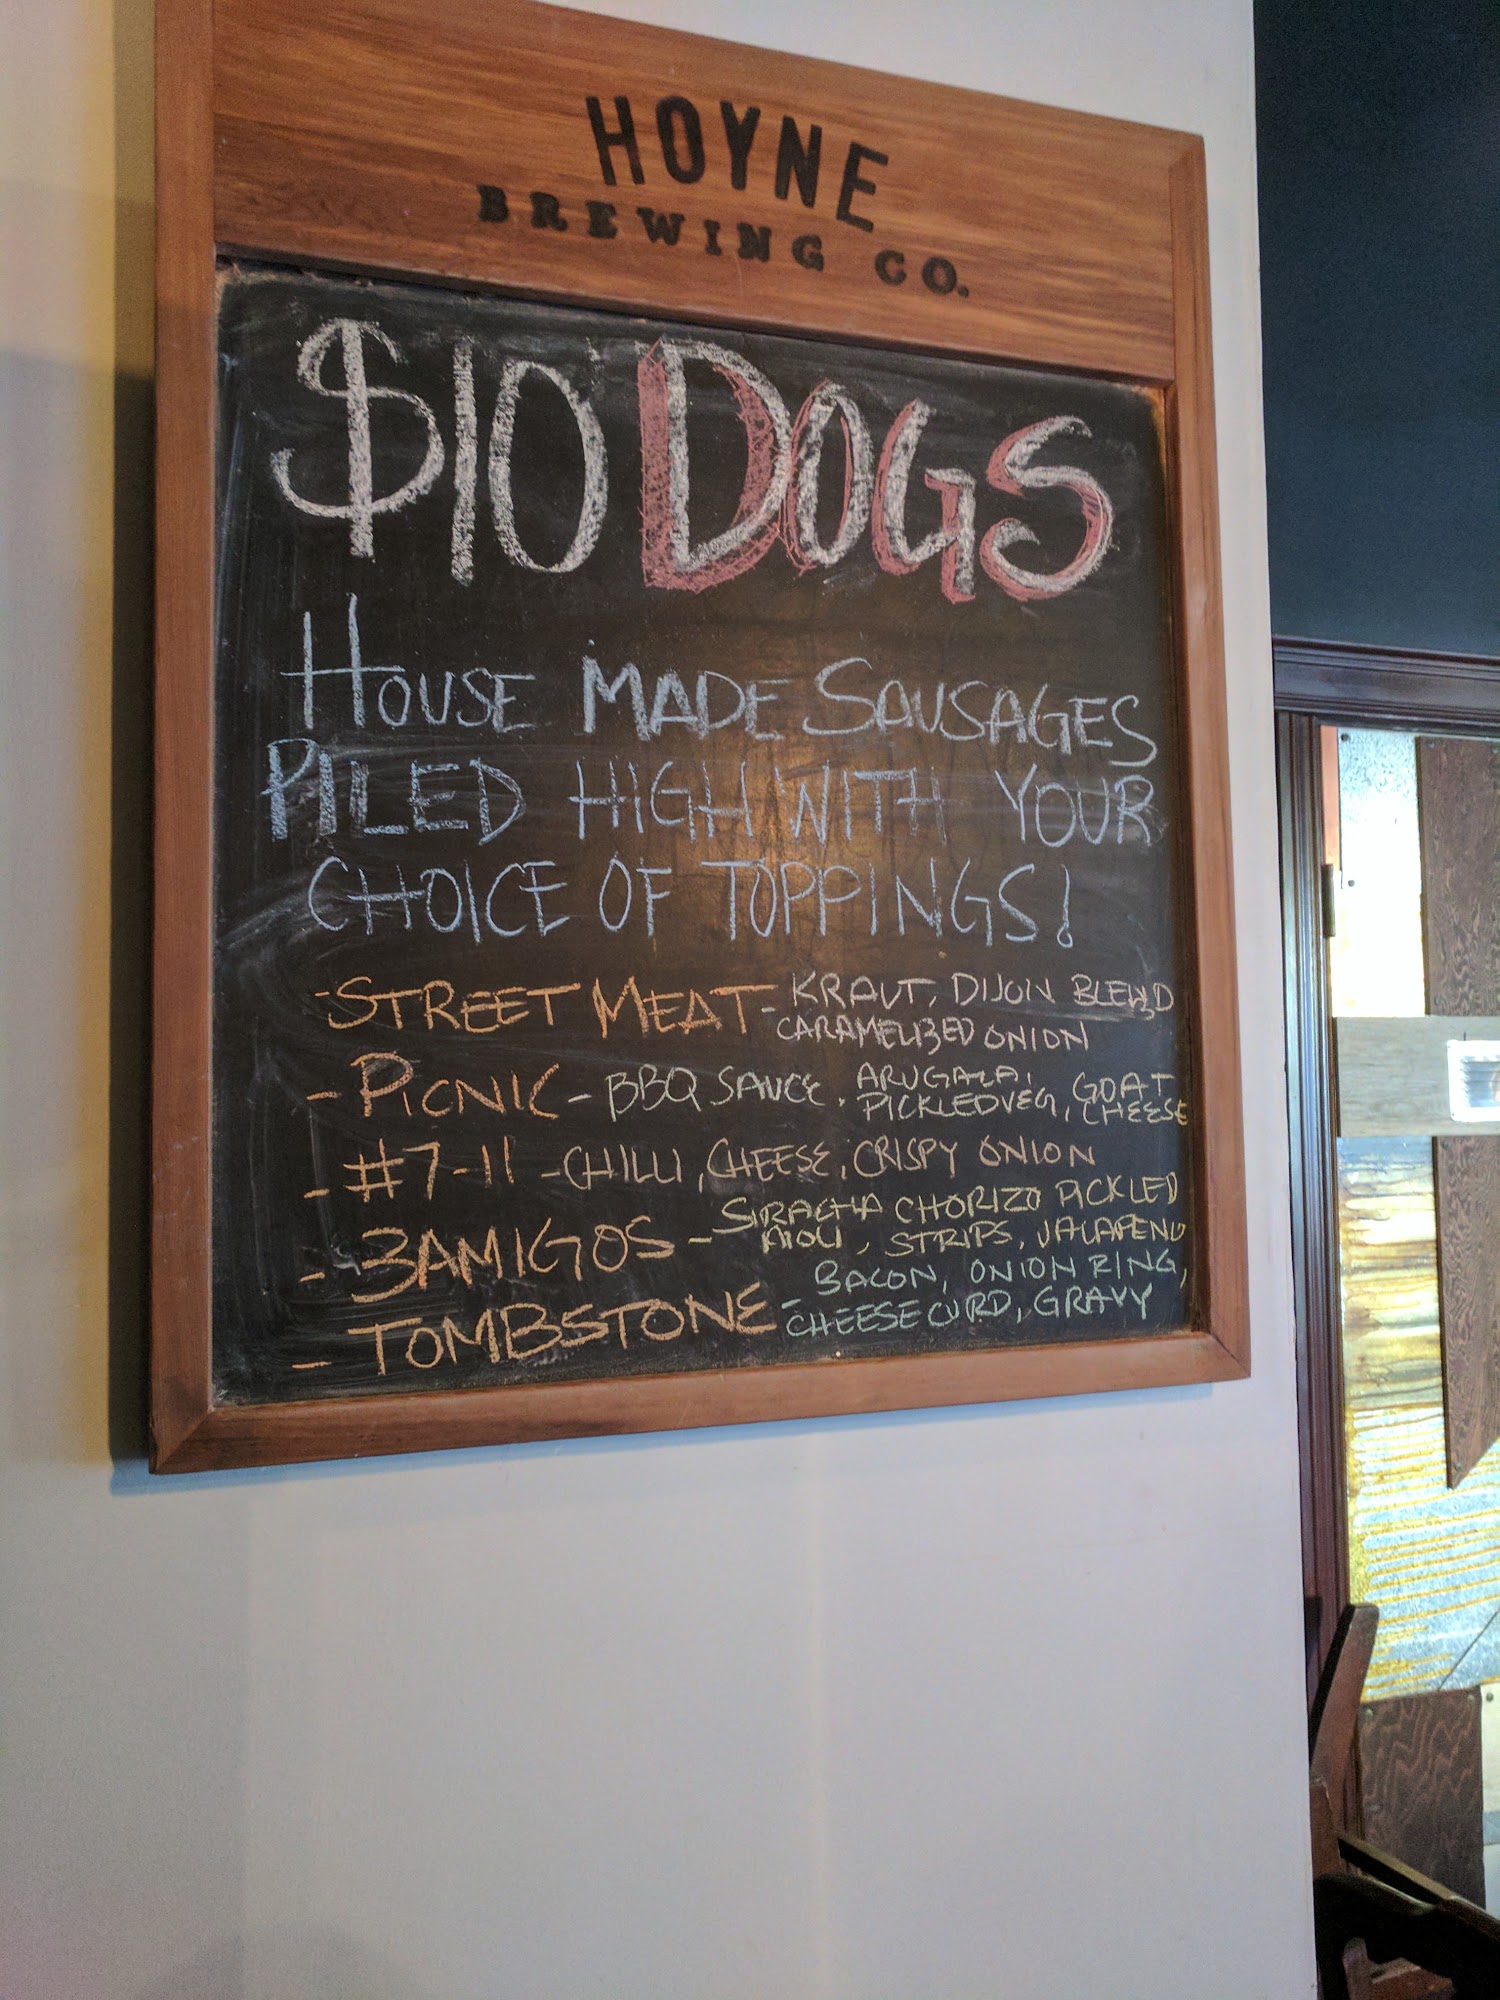 HOYNE
BREWING CO.
$10 DOGS
HOUSE MADE SAUSAGES
PILED HIGH WITH YOUR
CHOICE OF TOPPINGS!
-STREET MEAT- KRAUT, DIJON BLEND
CARAMELIZED ONION
- PICNIC - BBQ SAUCE, ARUGALA, GOAT
PICKLED VEG, CHEESE
- #7-11 - CHILLI, CHEESE, CRISPY ONION
- 3AMIGOS - SIRACHA CHORIZO PICKLED
AIOLI, STRIPS, JALAPENO
- TOMBSTONE - BACON, ONION RING,
CHEESE CURD, GRAVY